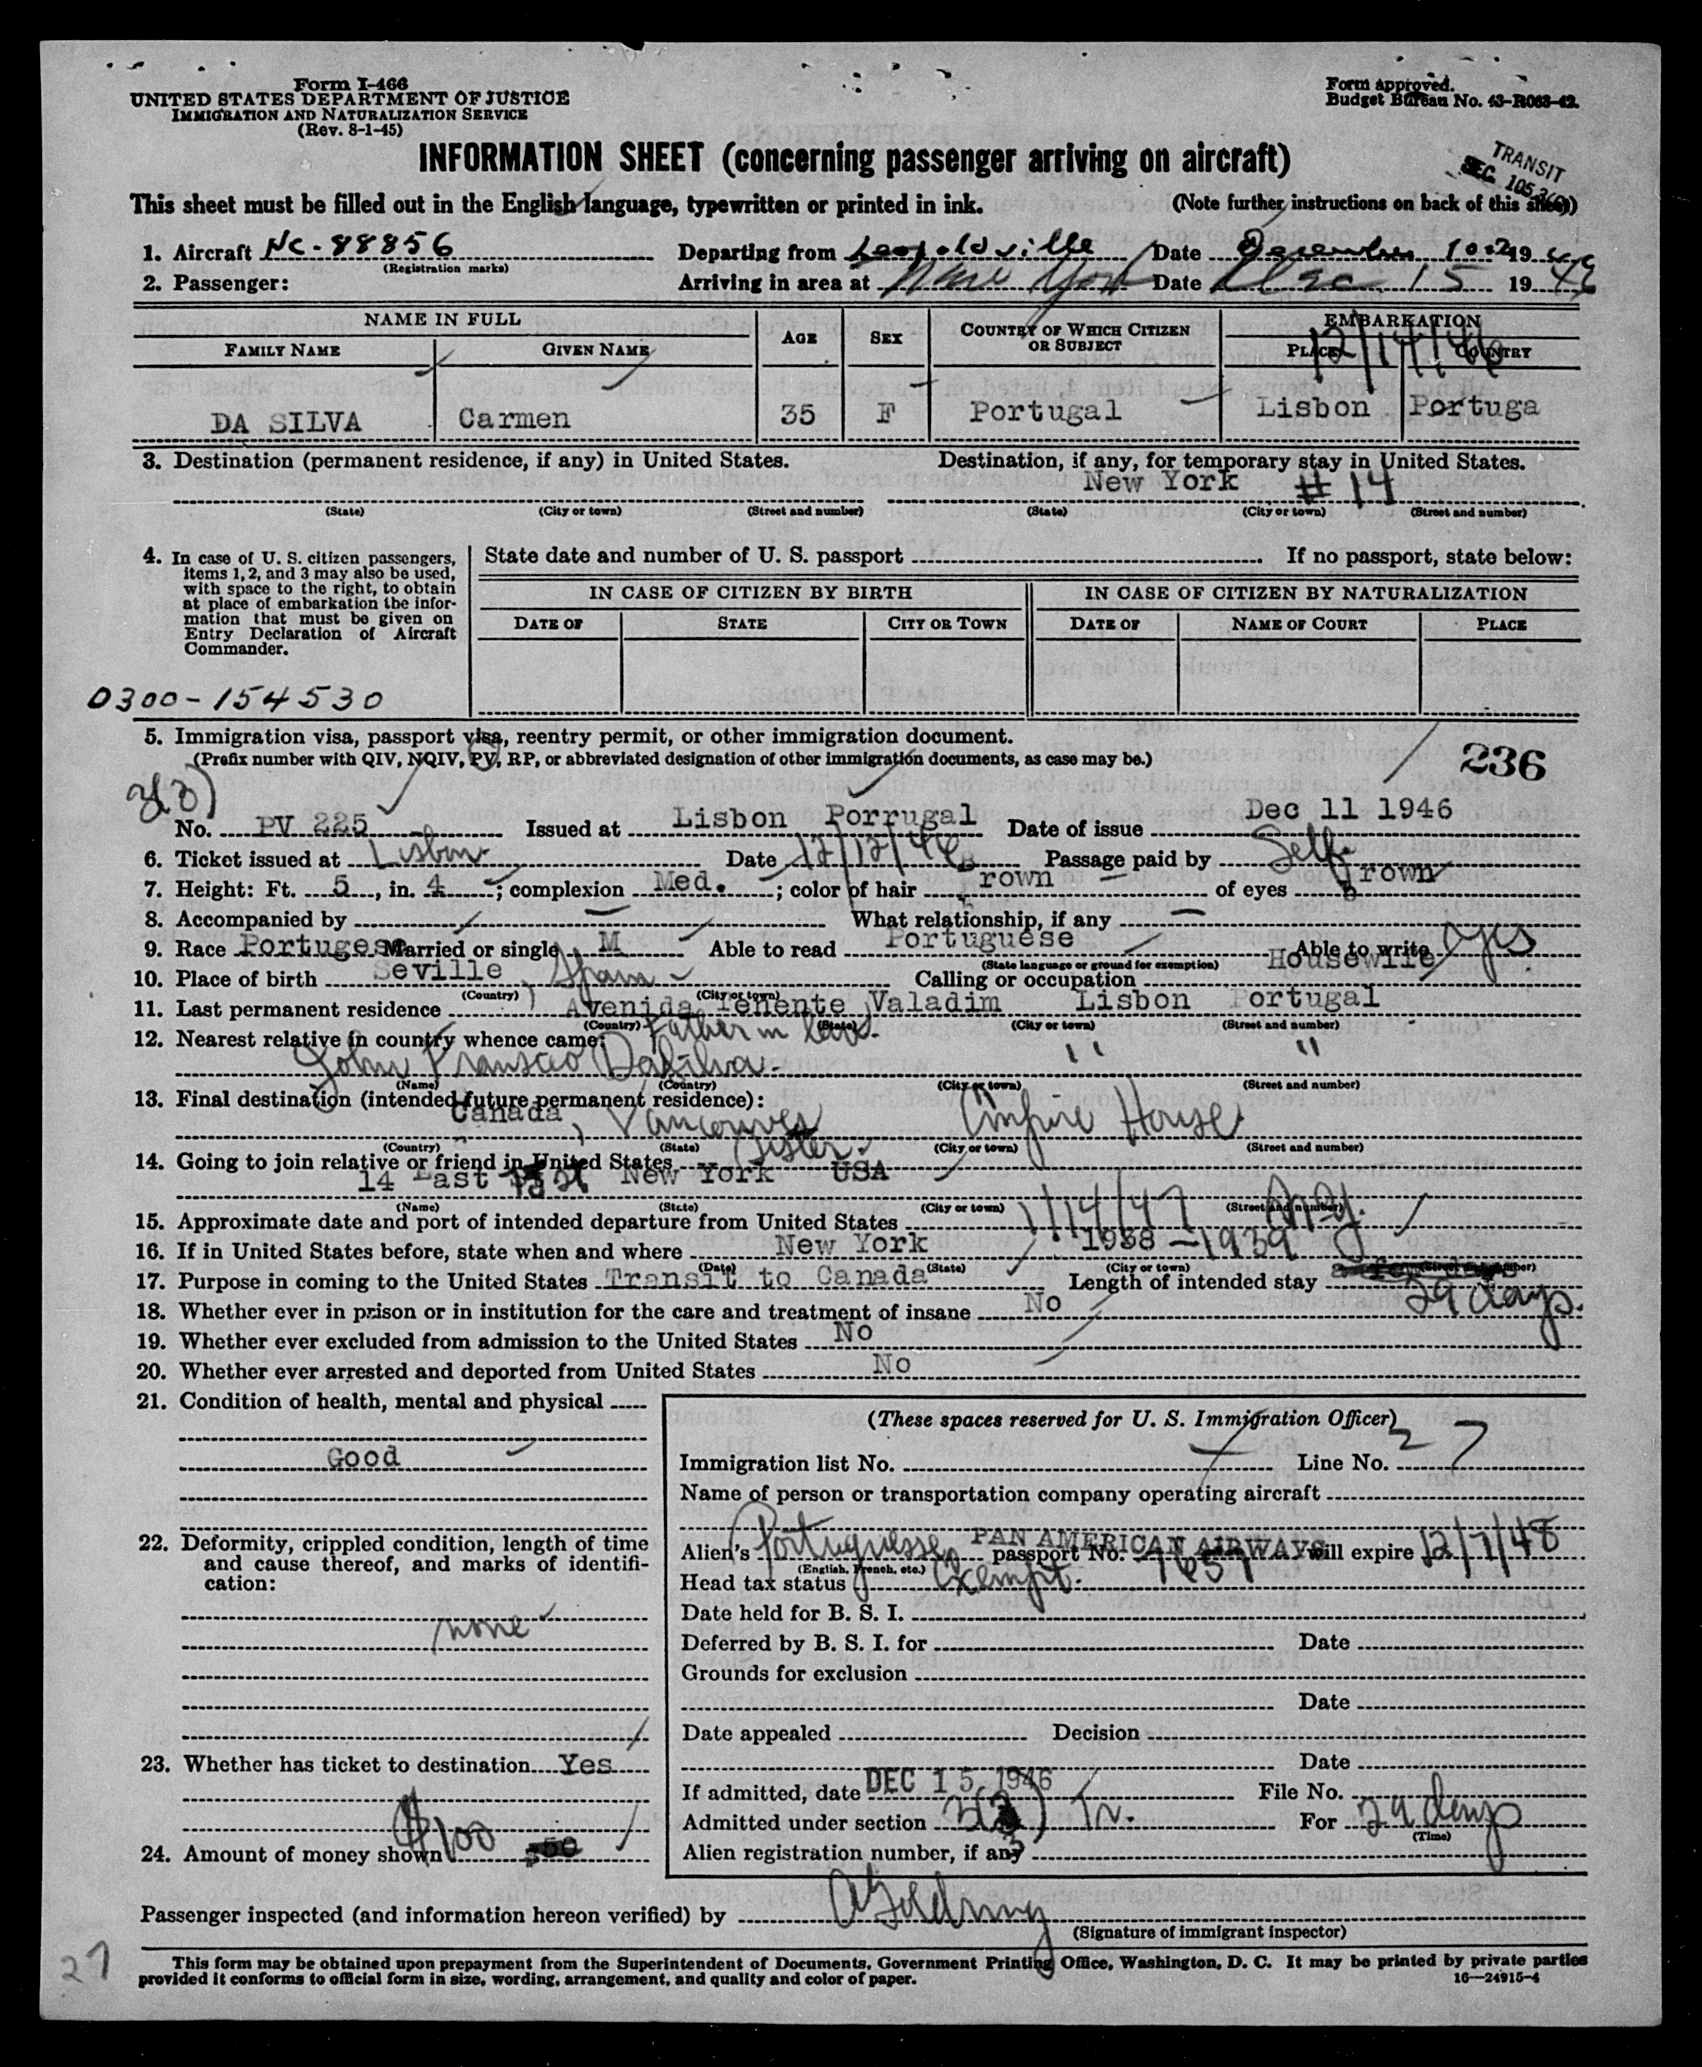 Form I-466
UNITED STATES DEPARTMENT OF JUSTICE
IMMIGRATION AND NATURALIZATION SERVICE
(Rev. 8-1-45)
Form approved.
Budget Bureau No. 43-R063-42.
INFORMATION SHEET (concerning passenger arriving on aircraft)
TRANSIT
SEC. 105.3(e)
This sheet must be filled out in the English language, typewritten or printed in ink. (Note further instructions on back of this sheet)
1. Aircraft NC-88856 Departing from Leopoldville Date December 10 19
(Registration marks)
2. Passenger: Arriving in area at New York Date Dec 15 1946
NAME IN FULL AGE SEX COUNTRY OF WHICH CITIZEN OR SUBJECT EMBARKATION
FAMILY NAME GIVEN NAME PLACE COUNTRY
12/14/46
DA SILVA Carmen 35 F Portugal Lisbon Portuga
3. Destination (permanent residence, if any) in United States. Destination, if any, for temporary stay in United States.
New York # 14
(State) (City or town) (Street and number) (State) (City or town) (Street and number)
4. In case of U. S. citizen passengers, items 1, 2, and 3 may also be used, with space to the right, to obtain at place of embarkation the information that must be given on Entry Declaration of Aircraft Commander.
State date and number of U. S. passport If no passport, state below:
IN CASE OF CITIZEN BY BIRTH IN CASE OF CITIZEN BY NATURALIZATION
DATE OF STATE CITY OR TOWN DATE OF NAME OF COURT PLACE
0300-154530
5. Immigration visa, passport visa, reentry permit, or other immigration document.
(Prefix number with QIV, NQIV, PV, RP, or abbreviated designation of other immigration documents, as case may be.) 236
3(3)
No. PV 225 Issued at Lisbon Porrugal Date of issue Dec 11 1946
6. Ticket issued at Lisbon Date 12/12/46 Passage paid by Self
7. Height: Ft. 5, in. 4; complexion Med.; color of hair Brown of eyes Brown
8. Accompanied by — What relationship, if any —
9. Race Portugese Married or single M Able to read Portuguese Able to write yes
(State language or ground for exemption)
10. Place of birth Seville, Spain Calling or occupation Housewife
(Country) (City or town)
11. Last permanent residence Avenida Tenente Valadim Lisbon Portugal
(Country) (State) (City or town) (Street and number)
12. Nearest relative in country whence came: Father in law.
John Fransco DaSilva. " "
(Name) (Country) (City or town) (Street and number)
13. Final destination (intended future permanent residence):
Canada, Vancouver Empire House
(Country) (State) (City or town) (Street and number)
14. Going to join relative or friend in United States Sister.
14 East New York USA
(Name) (State) (City or town) (Street and number)
15. Approximate date and port of intended departure from United States 1/14/47 N.Y.
16. If in United States before, state when and where New York 1938 - 1939
(Date) (State) (City or town) (Street and number)
17. Purpose in coming to the United States Transit to Canada Length of intended stay 29 days.
18. Whether ever in prison or in institution for the care and treatment of insane No
19. Whether ever excluded from admission to the United States No
20. Whether ever arrested and deported from United States No
21. Condition of health, mental and physical
Good
22. Deformity, crippled condition, length of time and cause thereof, and marks of identification:
none
23. Whether has ticket to destination Yes
24. Amount of money shown $100
(These spaces reserved for U. S. Immigration Officer)
Immigration list No. Line No. 27
Name of person or transportation company operating aircraft
PAN AMERICAN AIRWAYS
Alien's Portuguese passport No. 7657 will expire 12/7/48
(English, French, etc.)
Head tax status Exempt.
Date held for B. S. I.
Deferred by B. S. I. for Date
Grounds for exclusion
Date
Date appealed Decision
Date
If admitted, date DEC 15 1946 File No.
Admitted under section 3(3) Tr. For 29 days
(Time)
Alien registration number, if any
Passenger inspected (and information hereon verified) by
(Signature of immigrant inspector)
27
This form may be obtained upon prepayment from the Superintendent of Documents, Government Printing Office, Washington, D. C. It may be printed by private parties
provided it conforms to official form in size, wording, arrangement, and quality and color of paper. 16—24915-4